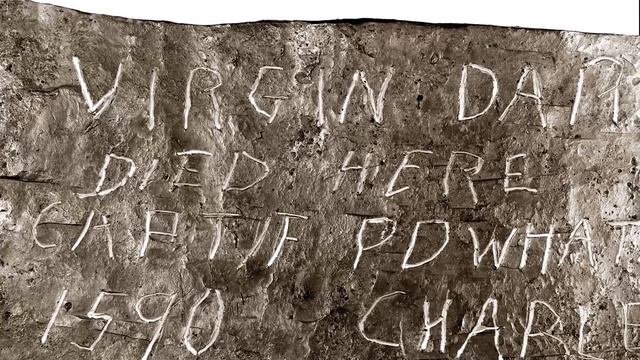 VIRGIN DAR
DIED HERE
CAPTIF POWHAT
1590 CHARLE